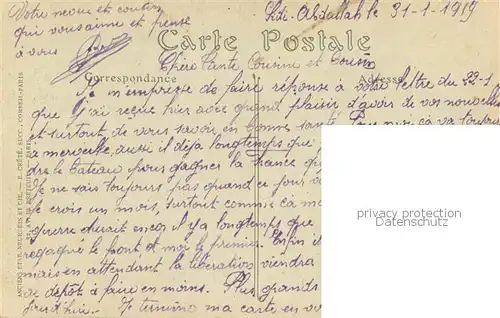 Votre neveu et cousin
qui vous aime et pense
à vous
Sidi-Abdallah le 31-1-1919
Carte Postale
Correspondance
Adresse
Chère Tante Cousine et Cousin
Je m'empresse de faire réponse à votre lettre du 22-1
que j'ai reçue hier avec grand plaisir d'avoir de vos nouvelle
et surtout de vous savoir en bonne santé Pour moi ça va toujours
à merveille, aussi il déja longtemps que
dre le bateau pour gagner la france
Je ne sais toujours pas quand ce jour
Je crois un mois, surtout comme ça
guerre durait encore il y a longtemps que
regagné le front et moi le premier. Enfin il
mais en attendant la libération viendra
de dépôt à faire en moins. Plus grands
Je termine ma carte en vo
privacy protection
Datenschutz
ANCIENS ETAB. NEURDEIN ET CIE. — E. CRÉTÉ, SUCC., CORBEIL-PARIS